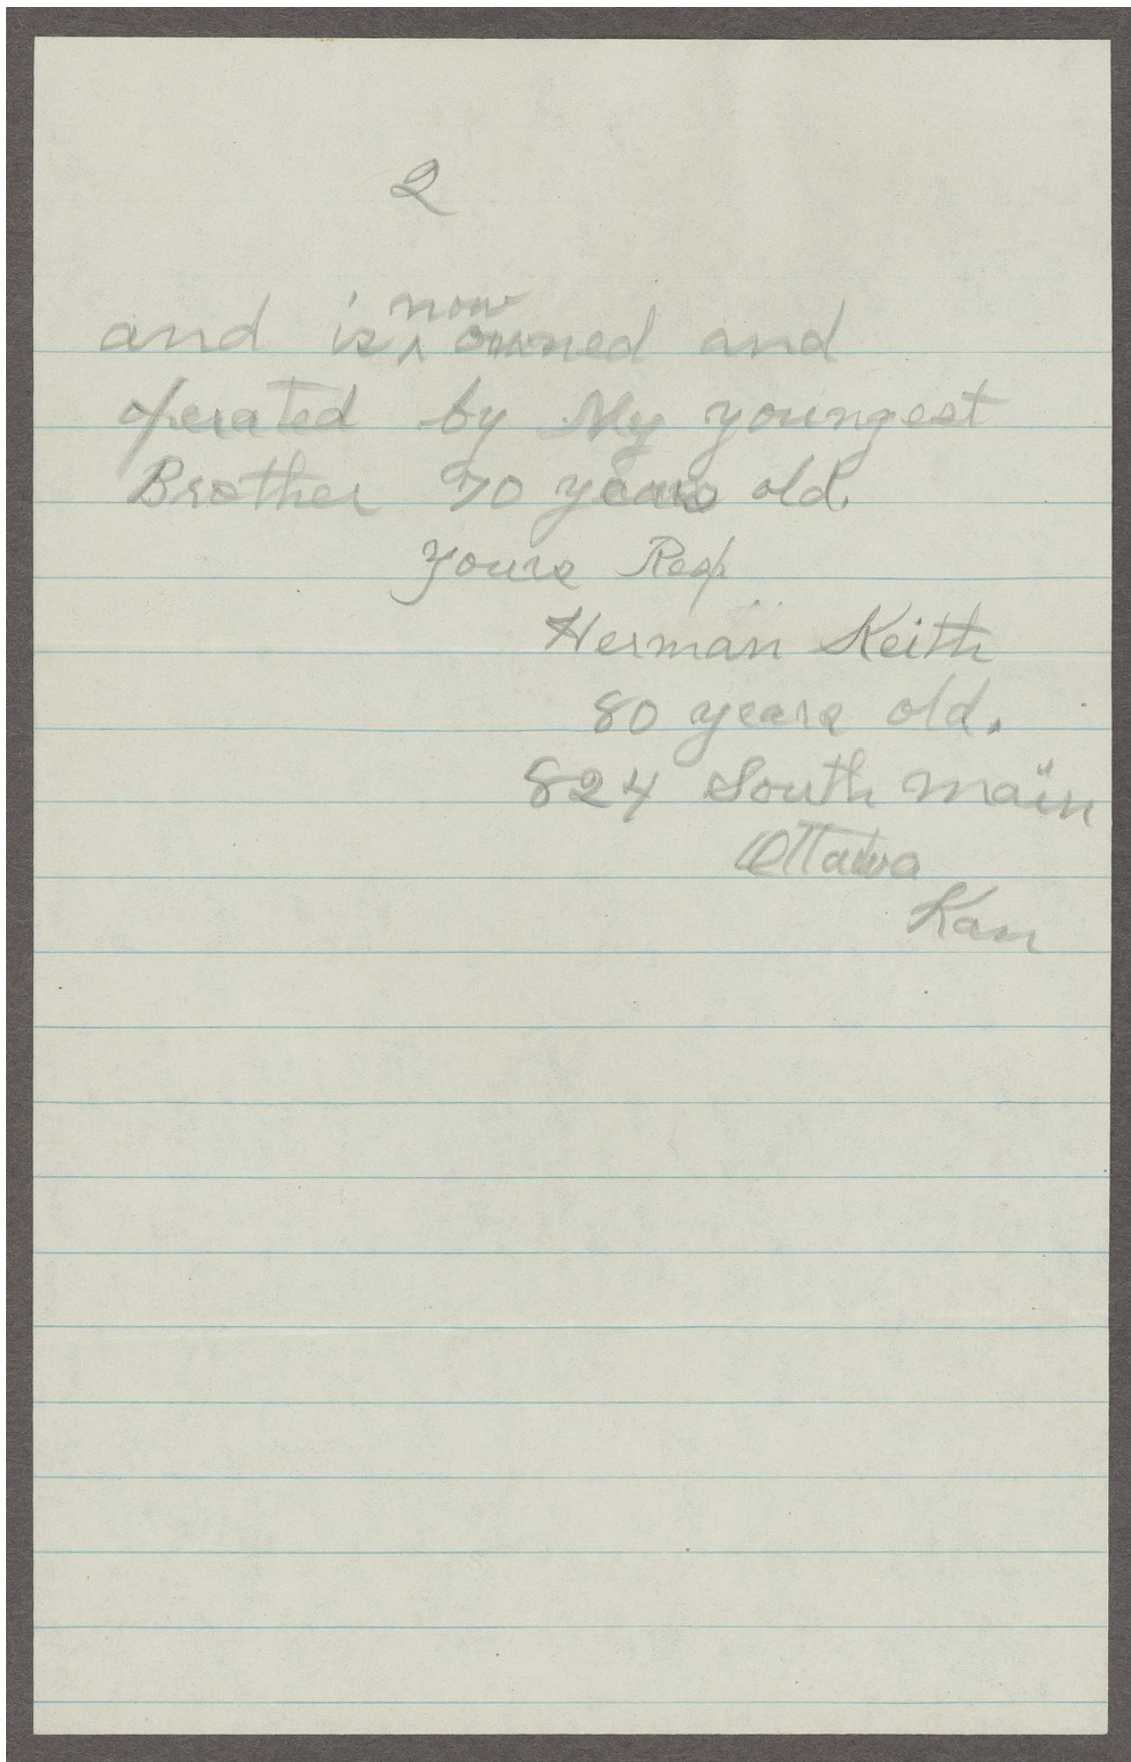 2
and is now owned and
operated by My youngest
Brother 70 years old.
Yours Resp
Herman Keith
80 years old.
824 South Main
Ottawa
Kan